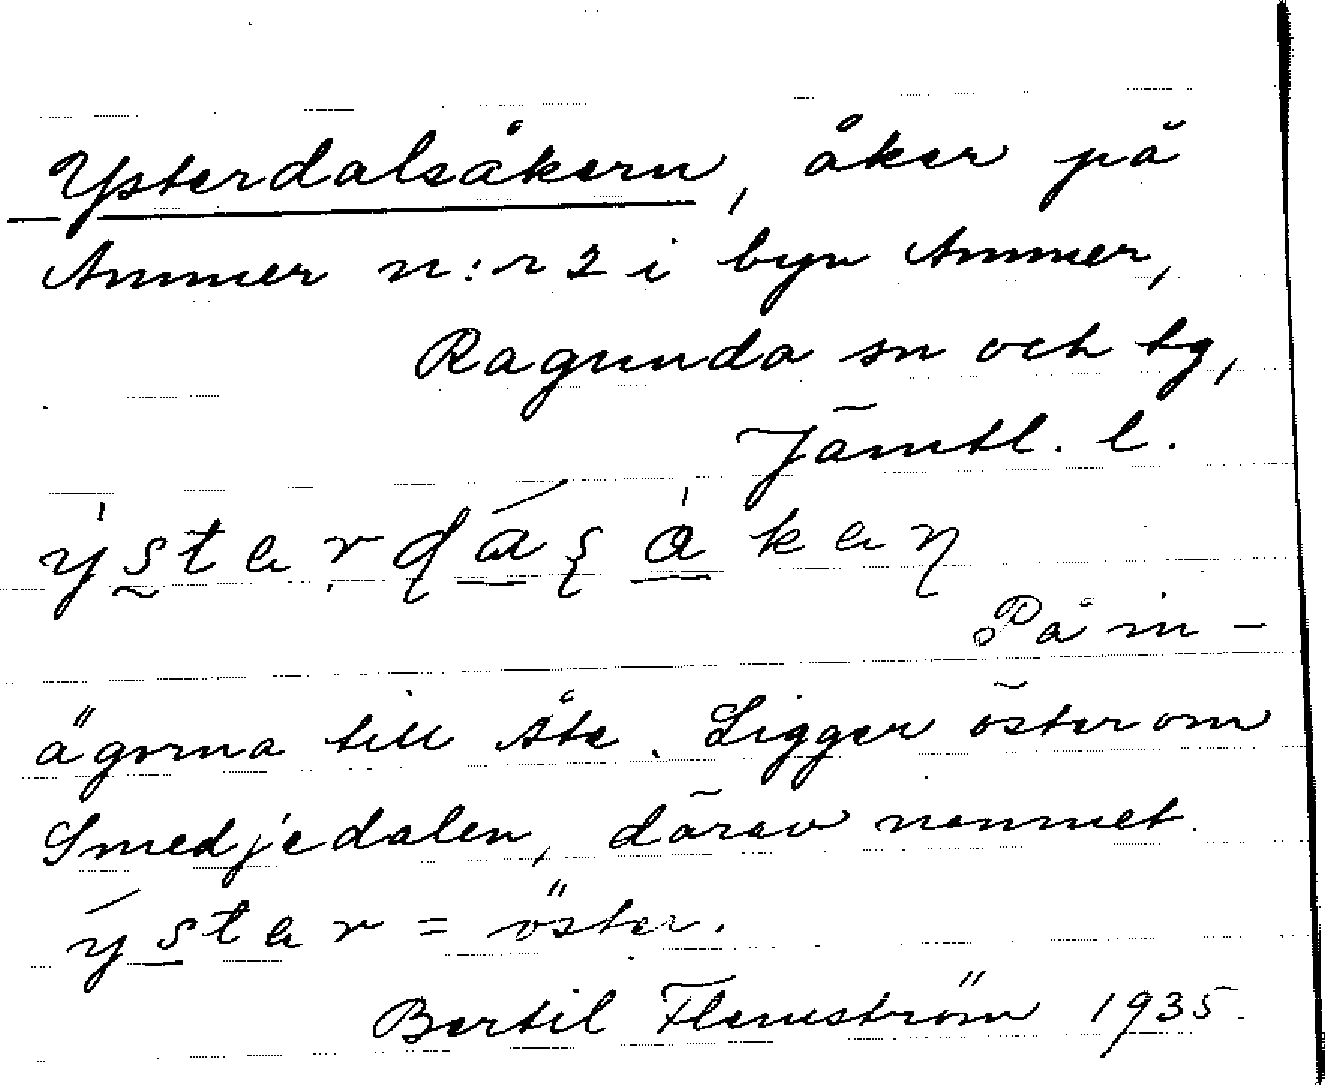 Ysterdalsåkern, åker på
Ammer n:r 2 i byn Ammer,
Ragunda sn och tg,
Jämtl. l.
På in-
ägorna till Åte. Ligger öster om
Smedjedalen, därav namnet.
yster = öster.
Bertil Flemström 1935.